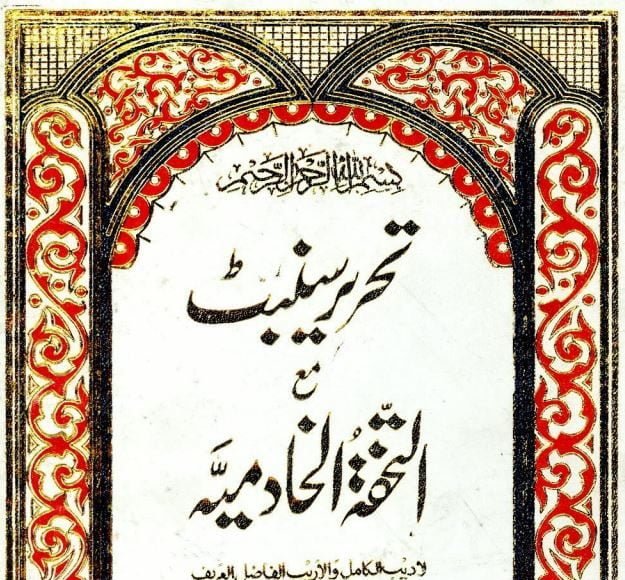 بسم الله الرحمن الرحيم
تحریر سنبٹ
مع
التحفۃ الخادمیہ
لاديب الكامل والاريب الفاضل العريف